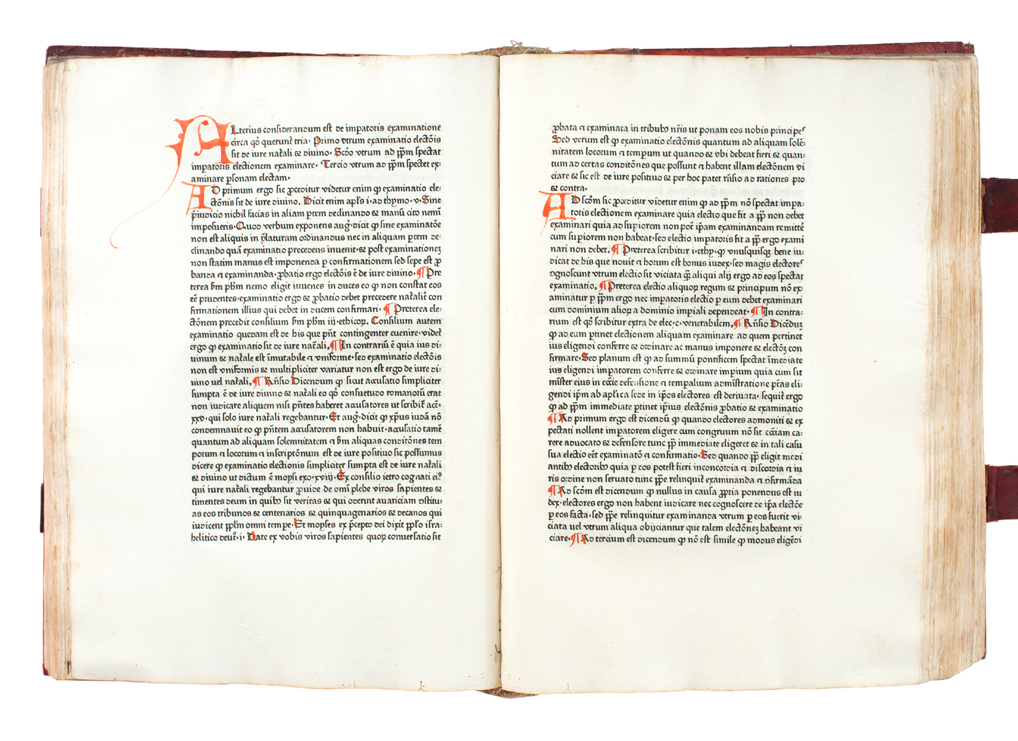 ALterius considerandum est de impatoris examinatione
circa qđ querunt᷑ tria. Primo vtrum examinatio electōis
sit de iure nat̄ali ꝛ diuino. Scđo vtrum ad p̄pm spectat
impatoris electionem examinare. Tercio vtrum ad p̄pm spectet ex
aminare ꝑsonam electam.
AD primum ergo sic ꝓceditur videtur enim ꝙ examinatio ele
ctōnis sit de iure diuino. Dicit enim apłs i. ad thymo. v. Sine
p̄iudicio nichil facias in aliam ꝑtem declinando ꝛ manū cito nemī
imposueris. Quod verbum exponens aug᷒ dicit ꝙ sine examinatōe
non est aliquis in p̄laturam ordinandus nec in aliquam ꝑtem de
clinando quā examinatio precedens inuenit. ꝛ post examinationez
non statim manus est imponenda ꝑ confirmationem sed sepe est ꝓ
banda ꝛ examinanda. ꝓbatio ergo electiōis ē de iure diuino. ¶ Pre
terea ꝑhm nemo eligit iuuenes in duces eo ꝙ non constat eos
eē prudentes. examinatio ergo ꝛ ꝓbatio debet precedere nat̄alit᷑ con
firmationem illius qui debet in ducem confirmari. ¶ Preterea ele
ctōnem precedit consilium ꝑhm iij. ethicoꝝ. Consilium autem
examinatio quedam est de his que pn̄t contingenter euenire. videt᷑
ergo ꝙ examinatio sit de iure nat̄ali. ¶ In contrariū ē quia ius di
uinum ꝛ nat̄ale est īmutabile ꝛ vniforme. sed examinatio electōis
non est vniformis ꝛ multipliciter variatur non est ergo de iure di
uino uel nat̄ali. ¶ Rn̄sio Dicendum ꝙ sicut accusatio simpliciter
sumpta ē de iure diuino ꝛ nat̄ali eo qđ consuetudo romanoꝝ erat
non iudicare aliquem nisi pn̄tes haberet accusatores ut scribit᷑ act᷒.
xxv. qui solo iure nat̄ali regebantur. Et aug᷒ dicit ꝙ xp̄us iudā nō
condemnauit eo ꝙ pn̄tem accusatorem non habuit. accusatio tamē
quantum ad aliquam solemnitatem ꝛ aliquas conditōnes tem
porum ꝛ locorum ꝛ inscriptōnum est de iure positiuo sic possumus
dicere ꝙ examinatio electionis simpliciter sumpta est de iure nat̄ali
ꝛ diuino ut dictum ē moysi exo. xviij. Ex consilio ietro cognati ei᷒
qui iure nat̄ali regebantur ꝓuide de omī plebe viros sapientes ꝛ
timentes deum in quibꝫ sit veritas ꝛ qui oderint auariciam ꝯstitu
as eos tribunos ꝛ centenarios ꝛ quinquagenarios ꝛ decanos qui
iudicent pp̄lm omni tempe. Et moyses ex p̄cepto dei dixit pp̄lo isra
helitico deut᷑. i. Date ex vobis viros sapientes quoꝝ conuersatio sit
ꝓbata ꝛ examinata in tribubꝫ vr̄is ut ponam eos vobis principes
Sed verum est ꝙ examinatio electōnis quantum ad aliquam solē
nitatem locorum ꝛ tempum ut quando ꝛ vbi debeat fieri ꝛ quan
tum ad certas conditōnes que possunt ꝛ habent illam electōnem vi
ciare ꝛ sic est de iure positiuo ꝛ per hoc patet rn̄sio ad rationes pro
ꝛ contra.
AD scđm sic ꝓceditur videtur enim ꝙ ad p̄pm nō spectat impa
toris electionem examinare quia electio que fit a p̄p̄ non debet
examinari quia ad supiorem non pōt ip̄am examinandam remittē
cum supiorem non habeat. sed electio impatoris fit a p̄p̄ ergo exami
nari non debet. ¶ Preterea scribitur i. ethy. ꝙ vnusquisqꝫ bene iu
dicat de his que nouit ꝛ horum est bonus iudex. sed magis electores
ꝯgnoscunt vtrum electio sit viciata q̄ aliqui alij ergo ad eos spectat
examinatio. ¶ Preterea electio aliquoꝝ regum ꝛ principum nō ex
aminatur ꝑ p̄pm ergo nec impatoris electio ꝑ eum debet examinari
cum dominium alioꝝ a dominio impiali dependeat. ¶ In contra
rium est qđ scribitur extra de elec. c. venerabilem. ¶ Rn̄sio Dicēduꝫ
ꝙ ad eum ptinet electionem aliquam examinare ad quem pertinet
ius eligendi conferre ꝛ ordinare ac manus imponere ꝛ electōꝫ con
firmare. Sed planum est ꝙ ad summū pontificem spectat īmediate
ius eligendi impatorem conferre ꝛ ordinare impium quia cum sit
mister eius in eccīe defensione ꝛ tempalium administratione pt̄as eli
gendi ip̄m ab aplica sede in ip̄os electores est deriuata. sequit᷑ ergo
ꝙ ad p̄pm immediate ptinet ip̄ius electōnis ꝓbatio ꝛ examinatio
¶ Ad primum ergo est dicendū ꝙ quando electores admoniti ꝛ ex
pectati nollent impatorem eligere cum congruum nō sit eccīam ca
rere aduocato ꝛ defensore tunc p̄p̄ immediate eligeret ꝛ in tali casu
sua electio eēt examinatō ꝛ confirmatio. Sed quando p̄p̄ eligit medi
antibꝫ electoribꝫ quia ꝑ eos potest fieri inconcordia ꝛ discordia ꝛ iu
ris ordine non seruato tunc p̄p̄e relinquit᷑ examinanda ꝛ ꝯfirmāda
¶ Ad scđm est dicendum ꝙ nullus in causa ꝓpria ponendus est iu
dex. electores ergo non habent iudicare nec cognoscere de ip̄a electōe
ꝑ eos facta. sed p̄p̄e relinquitur examinanda vtrum ꝑ eos fuerit vi
ciata uel vtrum aliqua obijciantur que talem electōneꝫ habeant vi
ciare. ¶ Ad tercium est dicendum ꝙ nō est simile ꝙ modus eligēdi